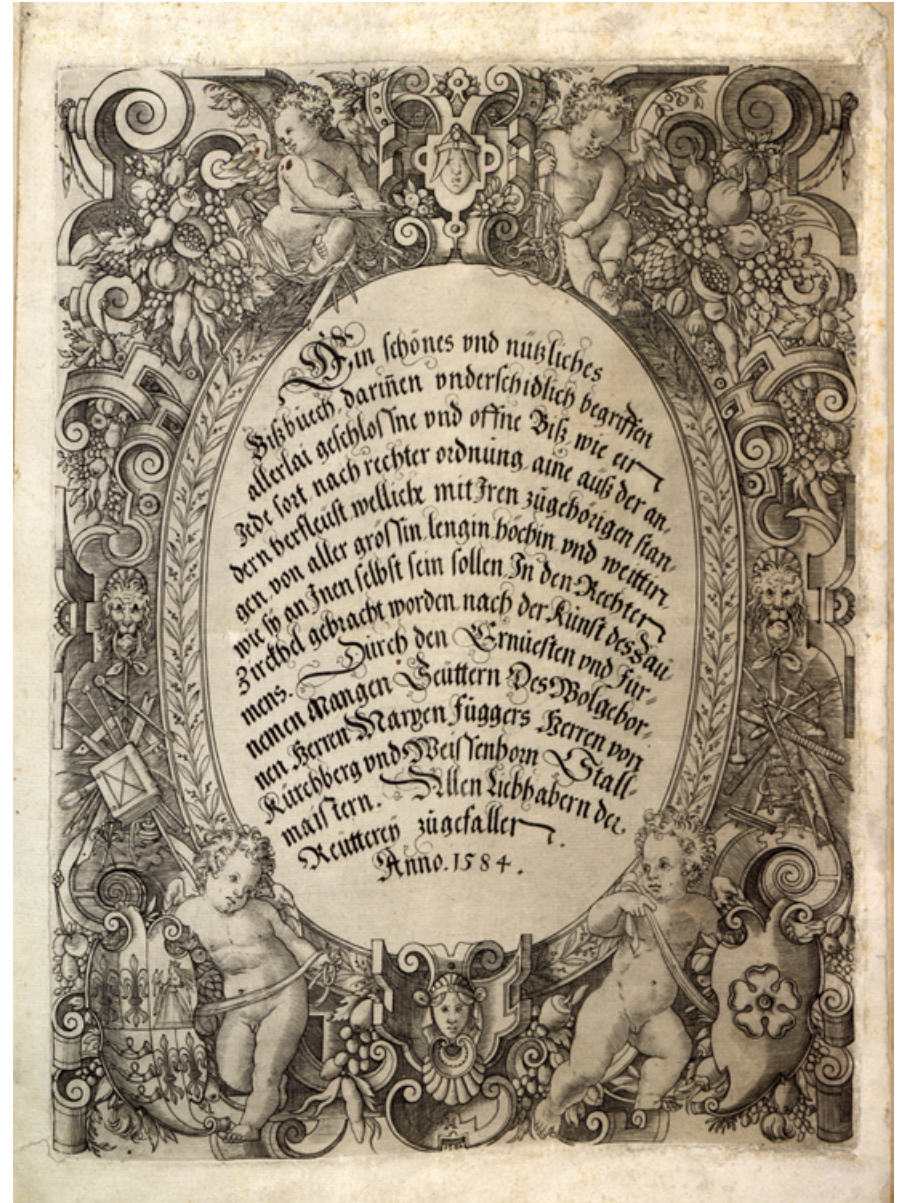 Ein schönes vnd nützliches
Bißbuech, darin̄en vnderschidlich begriffen
allerlai geschlossne vnd offne Biß, wie ein
Jede sort, nach rechter ordnung, aine auß der an,
dern verfleust, welliche mit Jren zugehörigen stan,
gen, von aller grössin, lengin, höchin, vnd weittin,
wie sÿ an Jnen selbst sein sollen, Jn den Rechten
Zirckhel gebracht worden, nach der Kunst des Zäu
mens. Durch den Ernuesten vnd Für,,
nemen Mangen Seüttern Des Wolgebor,,
nen Herren Marxen Fuggers Herren von
Kürchberg vnd Weissenhorn Stall,,
maistern. Allen Liebhabern der
Reütterey zugefallen.
Anno. 1584.